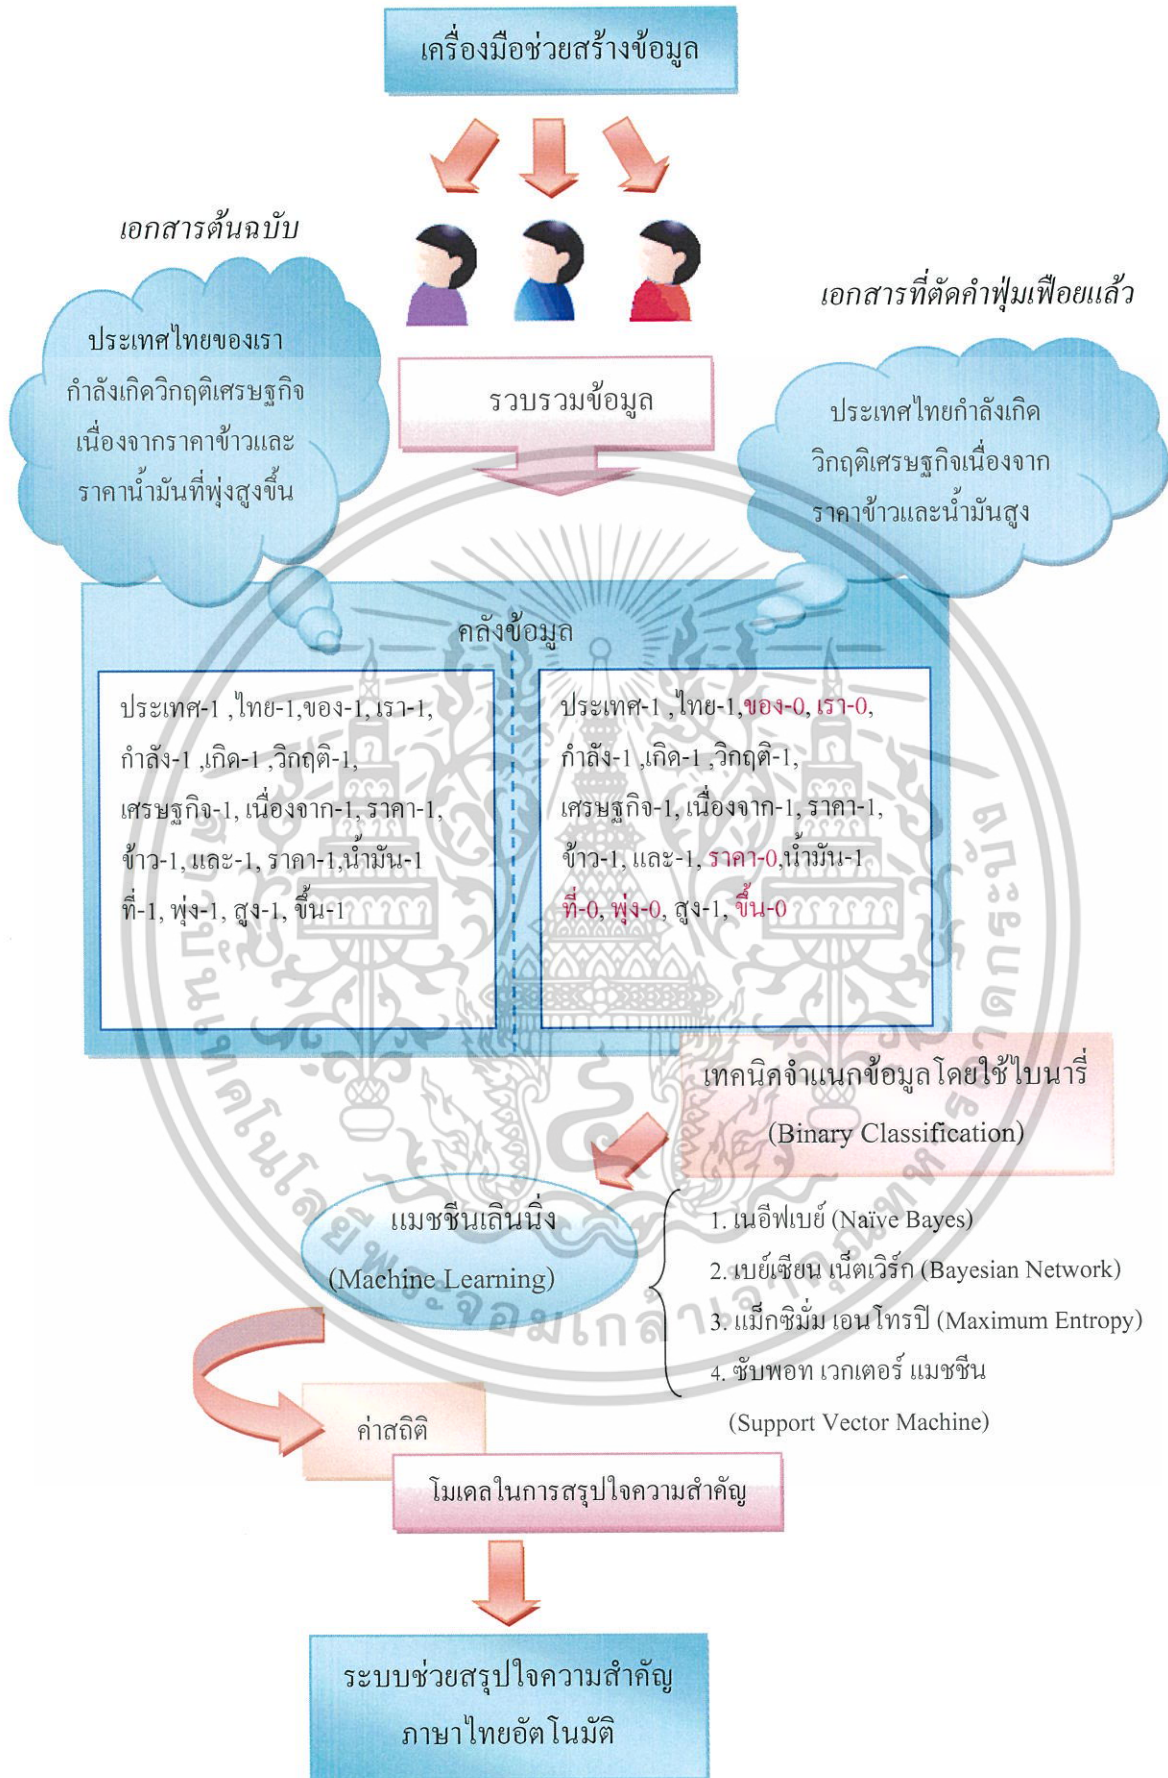 เครื่องมือช่วยสร้างข้อมูล
เอกสารต้นฉบับ
ประเทศไทยของเรา
กำลังเกิดวิกฤติเศรษฐกิจ
เนื่องจากราคาข้าวและ
ราคาน้ำมันที่พุ่งสูงขึ้น
รวบรวมข้อมูล
เอกสารที่ตัดคำฟุ่มเฟือยแล้ว
ประเทศไทยกำลังเกิด
วิกฤติเศรษฐกิจเนื่องจาก
ราคาข้าวและน้ำมันสูง
คลังข้อมูล
ประเทศ-1 ,ไทย-1,ของ-1, เรา-1,
กำลัง-1 ,เกิด-1 ,วิกฤติ-1,
เศรษฐกิจ-1, เนื่องจาก-1, ราคา-1,
ข้าว-1, และ-1, ราคา-1,น้ำมัน-1
ที่-1, พุ่ง-1, สูง-1, ขึ้น-1
ประเทศ-1 ,ไทย-1,ของ-0, เรา-0,
กำลัง-1 ,เกิด-1 ,วิกฤติ-1,
เศรษฐกิจ-1, เนื่องจาก-1, ราคา-1,
ข้าว-1, และ-1, ราคา-0,น้ำมัน-1
ที่-0, พุ่ง-0, สูง-1, ขึ้น-0
เทคนิคจำแนกข้อมูลโดยใช้ไบนารี่
(Binary Classification)
แมชชีนเลินนิ่ง
(Machine Learning)
1. เนอีฟเบย์ (Naïve Bayes)
2. เบย์เซียน เน็ตเวิร์ก (Bayesian Network)
3. แม็กซิมั่ม เอนโทรปี (Maximum Entropy)
4. ซับพอท เวกเตอร์ แมชชีน
(Support Vector Machine)
ค่าสถิติ
โมเดลในการสรุปใจความสำคัญ
ระบบช่วยสรุปใจความสำคัญ
ภาษาไทยอัตโนมัติ
สถาบันเทคโนโลยีพระจอมเกล้าเจ้าคุณทหารลาดกระบัง